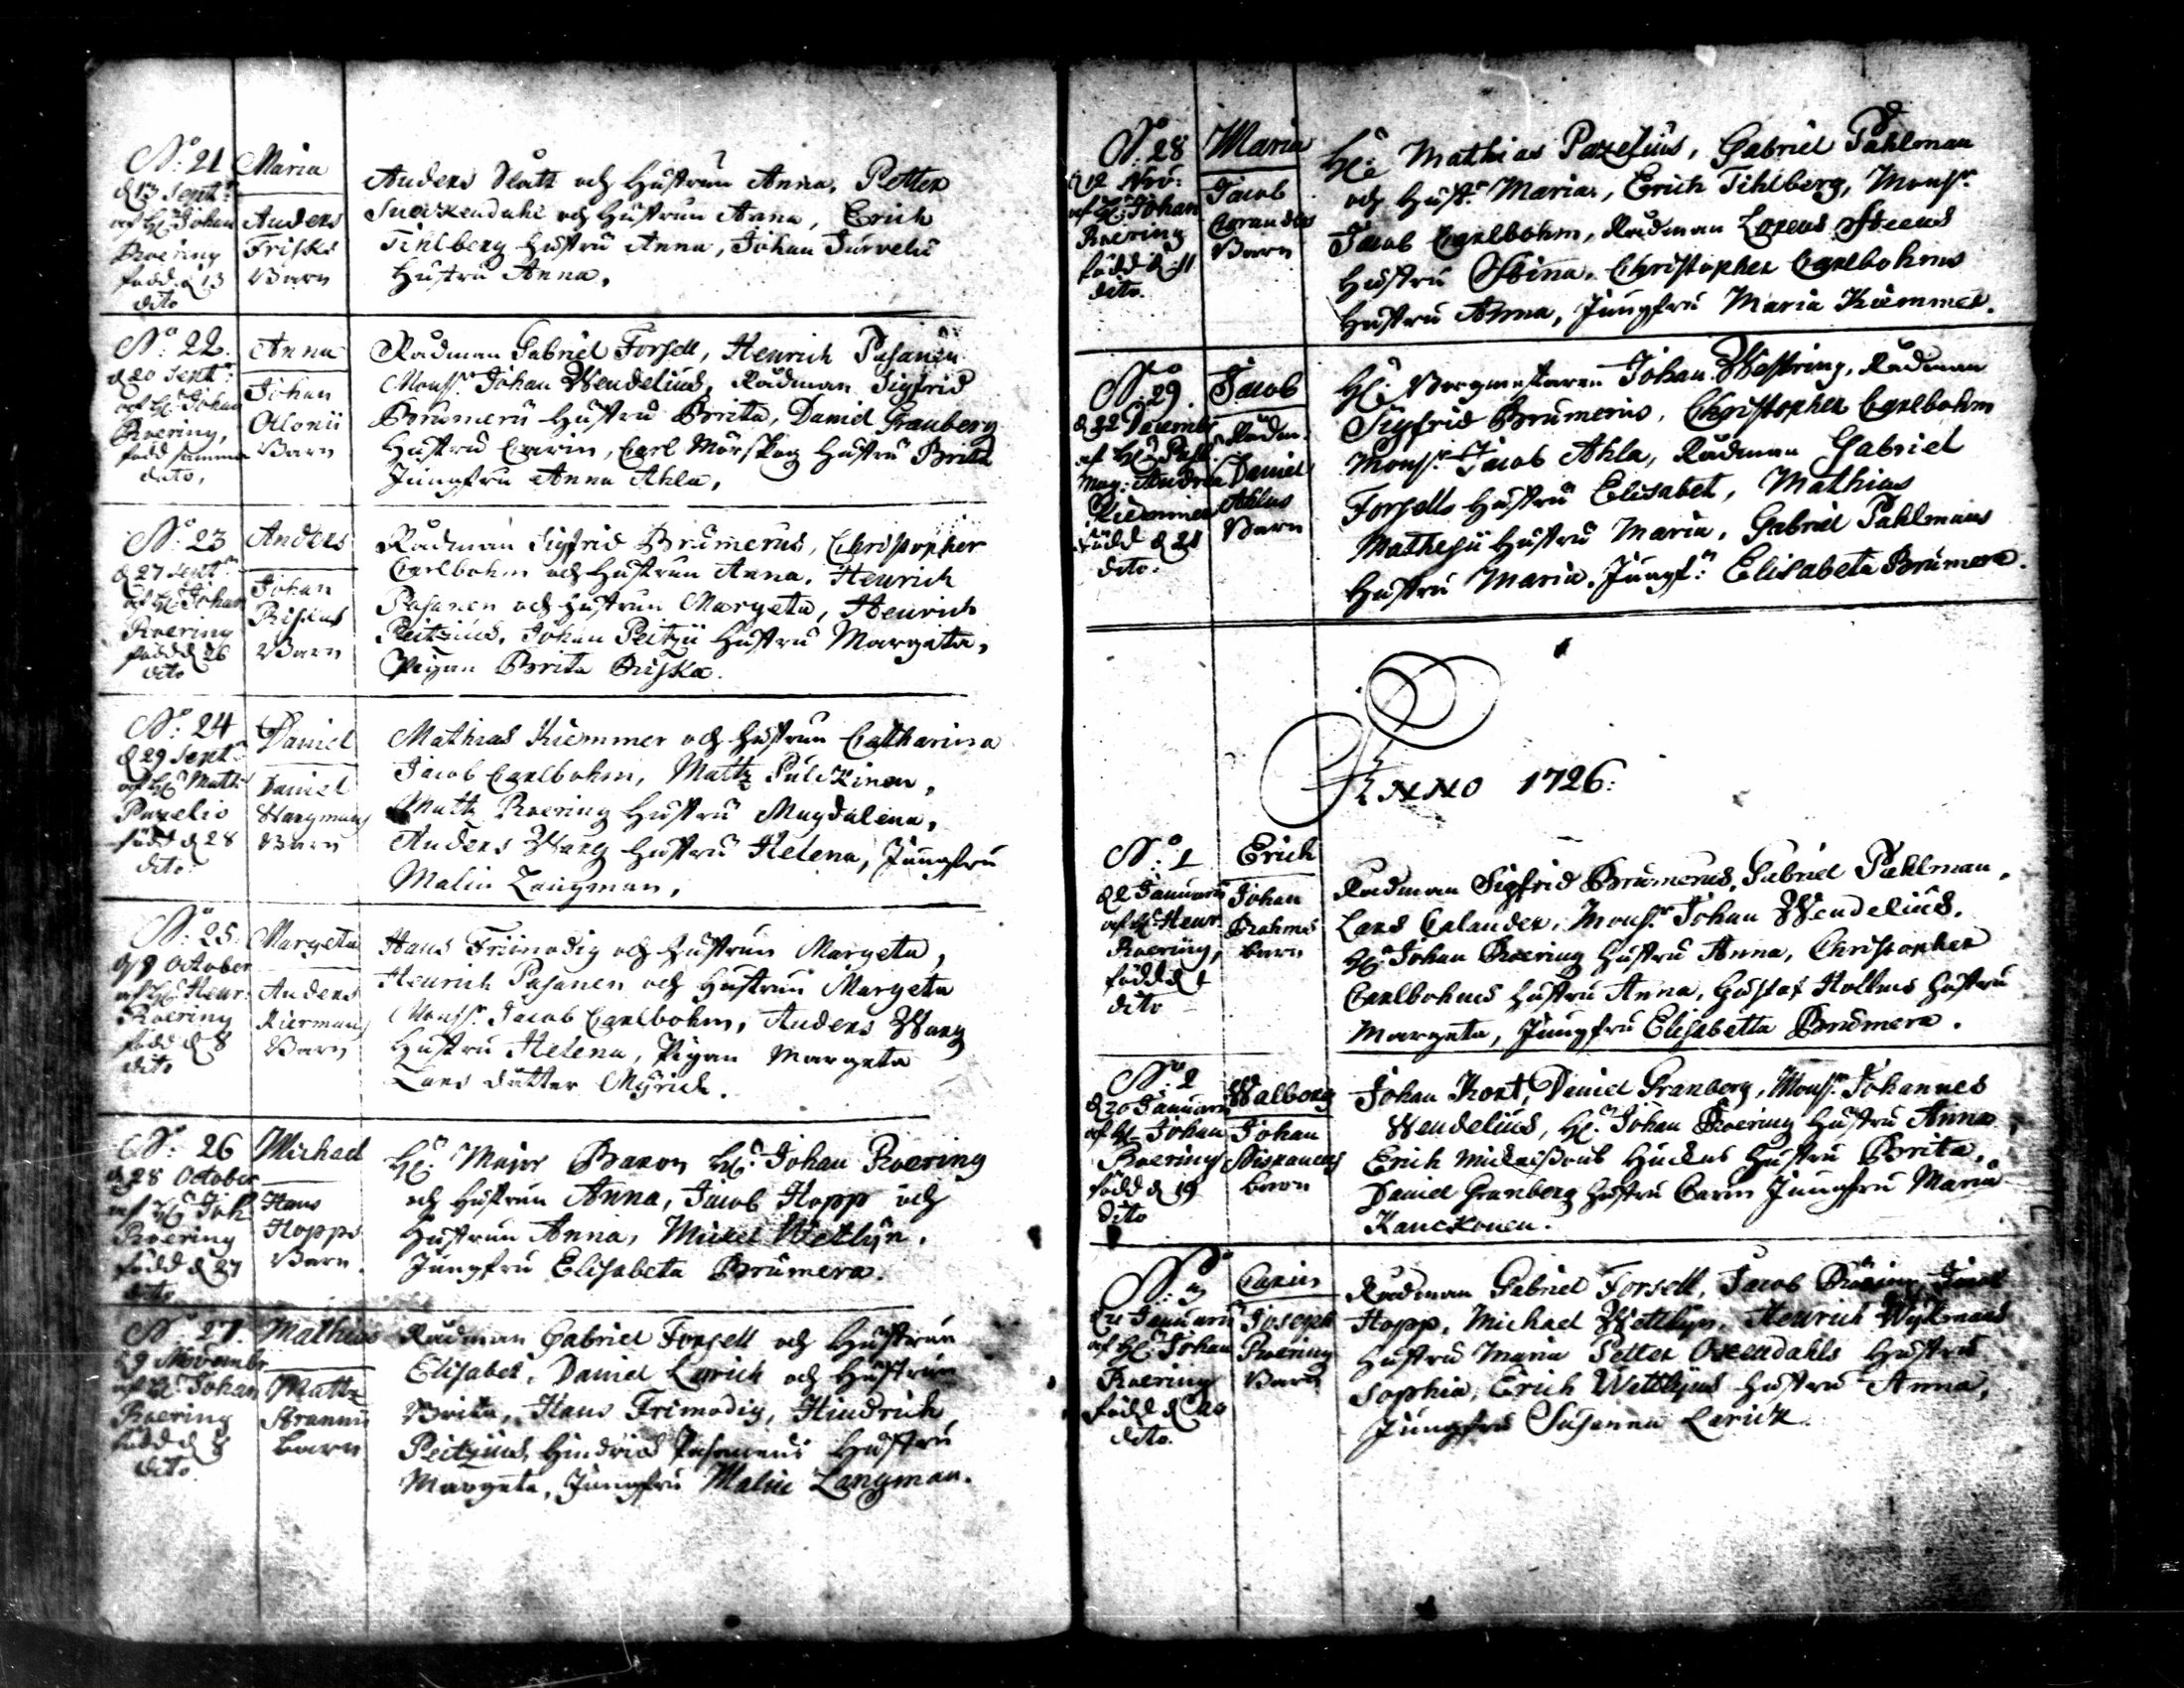 No: 21
d 13 Sept:
af H: Johan
Roering
född d 13
dito
Maria
Anders
Frisks
Barn
Anders Slatt och Hustrun Anna, Petter
Snäckendahl och Hustrun Anna, Erich
Tihlberg Hustru Anna, Johan Jurveli
Hustru Anna,
No: 22.
d 20 Sept:
af H: Johan
Roering,
född samma
dato,
Anna
Johan
Alonii
Barn
Rådman Gabriel Forsell, Henrich Pasanen
Monsr. Johan Wendelius, Rådman Sigfrid
Brumerii Hustru Brita, Daniel Granberg
Hustru Carin, Carl Mörskog Hustru Brita
Jungfru Anna Ahla,
No: 23
d 27 Sept:
af H: Johan
Roering
född d 26
dito
Anders
Johan
Riskas
Barn
Rådman Sigfrid Brumerus, Christopher
Carlbohm och Hustrun Anna, Henrich
Pasanen och Hustrun Margeta, Henrich
Peitzius, Johan Peitzii Hustru Margeta,
Pigan Brita Riska.
No: 24
d 29 Sept:
af H: Math:
Pazelio
född d 28
dito
Daniel
Daniel
Wargmans
Barn
Mathias Kiemmer och Hustrun Catharina
Jacob Carlbohm, Mattz Pulckinen,
Mattz Roering Hustru Magdalena,
Anders Warg Hustru Helena, Jungfru
Malin Langman,
No: 25.
d 9 October
af H: Henr:
Roering
född d 8
dito
Margeta
Anders
Kiermans
Barn
Hans Frimodig och Hustrun Margeta,
Henrich Pasanen och Hustrun Margeta
Monsr. Jacob Carlbohm, Anders Warg
Hustru Helena, Pigan Margeta
Lars dotter Myrick.
No: 26
d 28 October
af H: Joh:
Roering
född d 27
dito
Michael
Hans
Hopps
Barn.
H: Major Baron H: Johan Roering
och Hustrun Anna, Jacob Hopp och
Hustrun Anna, Mickel Wetlÿn,
Jungfru Elisabeta Brumera.
No: 27.
d 9 Novembr
af H: Johan
Roering
född d 8
dito.
Mathias
Mattz
Barn
Rådman Gabriel Forsell och Hustrun
Elisabet, Daniel Lyrich och Hustrun
Brita, Hans Frimodig, Hindrich
Peitzius, Hindrich Pasanens Hustru
Margeta, Jungfru Malin Langman.
No: 28
d 12 Nov:
af H: Johan
Roering
född d. 11
dito.
Maria
Jacob
Barn
H: Mathias Pazelius, Gabriel Pahlman
och Hustr: Maria, Erich Tihlberg, Monsr.
Jacob Carlbohm, Rådman Lorens Steens
Hustru Stina, Christopher Carlbohms
Hustru Anna, Jungfru Maria Kiemmer.
No: 29.
d 22 Decembr
af H: Past:
Mag: Andrea
Kiemmer
född d 21
dito.
Jacob
Rådm.
Daniel
Ahlas
Barn
H: Borgmestaren Johan Westring, Rådman
Sigfrid Brumerus, Christopher Carlbohm
Monsr. Jacob Ahla, Rådman Gabriel
Forsells Hustru Elisabet, Mathias
Mathesii Hustru Maria, Gabriel Pahlmans
Hustru Maria, Jungf: Elisabeta Brumera.
ANNO 1726:
No: 1
d 2 Januarii
af H: Henr
Roering,
född d 1
dito
Erich
Johan
Brahms
Barn
Rådman Sigfrid Brumerus, Gabriel Pahlman,
Lars Calander, Monsr. Johan Wendelius.
H: Johan Roering Hustru Anna, Christopher
Carlbohms Hustru Anna, Gustaf Hollms Hustru
Margeta, Jungfru Elisabetta Brumera.
No: 2
d 20 Januarii
af H: Johan
Roering
född d 19
dito
Walborg
Johan
Barn
Johan Kort, Daniel Granberg, Monsr. Johannes
Wendelius, H: Johan Roering Hustru Anna,
Erich Hustru Brita,
Daniel Granberg Hustru Carin Jungfru Maria
Kanckonen.
No: 3
Januarii
af H: Johan
Roering
född d 20
dito.
Carin
Joseph
Roering
Barn
Rådman Gabriel Forsell, Jacob Roering,
Hopp, Michael Wettlÿn, Henrich Wijkmans
Hustru Maria Petter Oxendahls Hustru
Sophia, Erich Wettlÿns Hustru Anna,
Jungfru Susanna Larick.